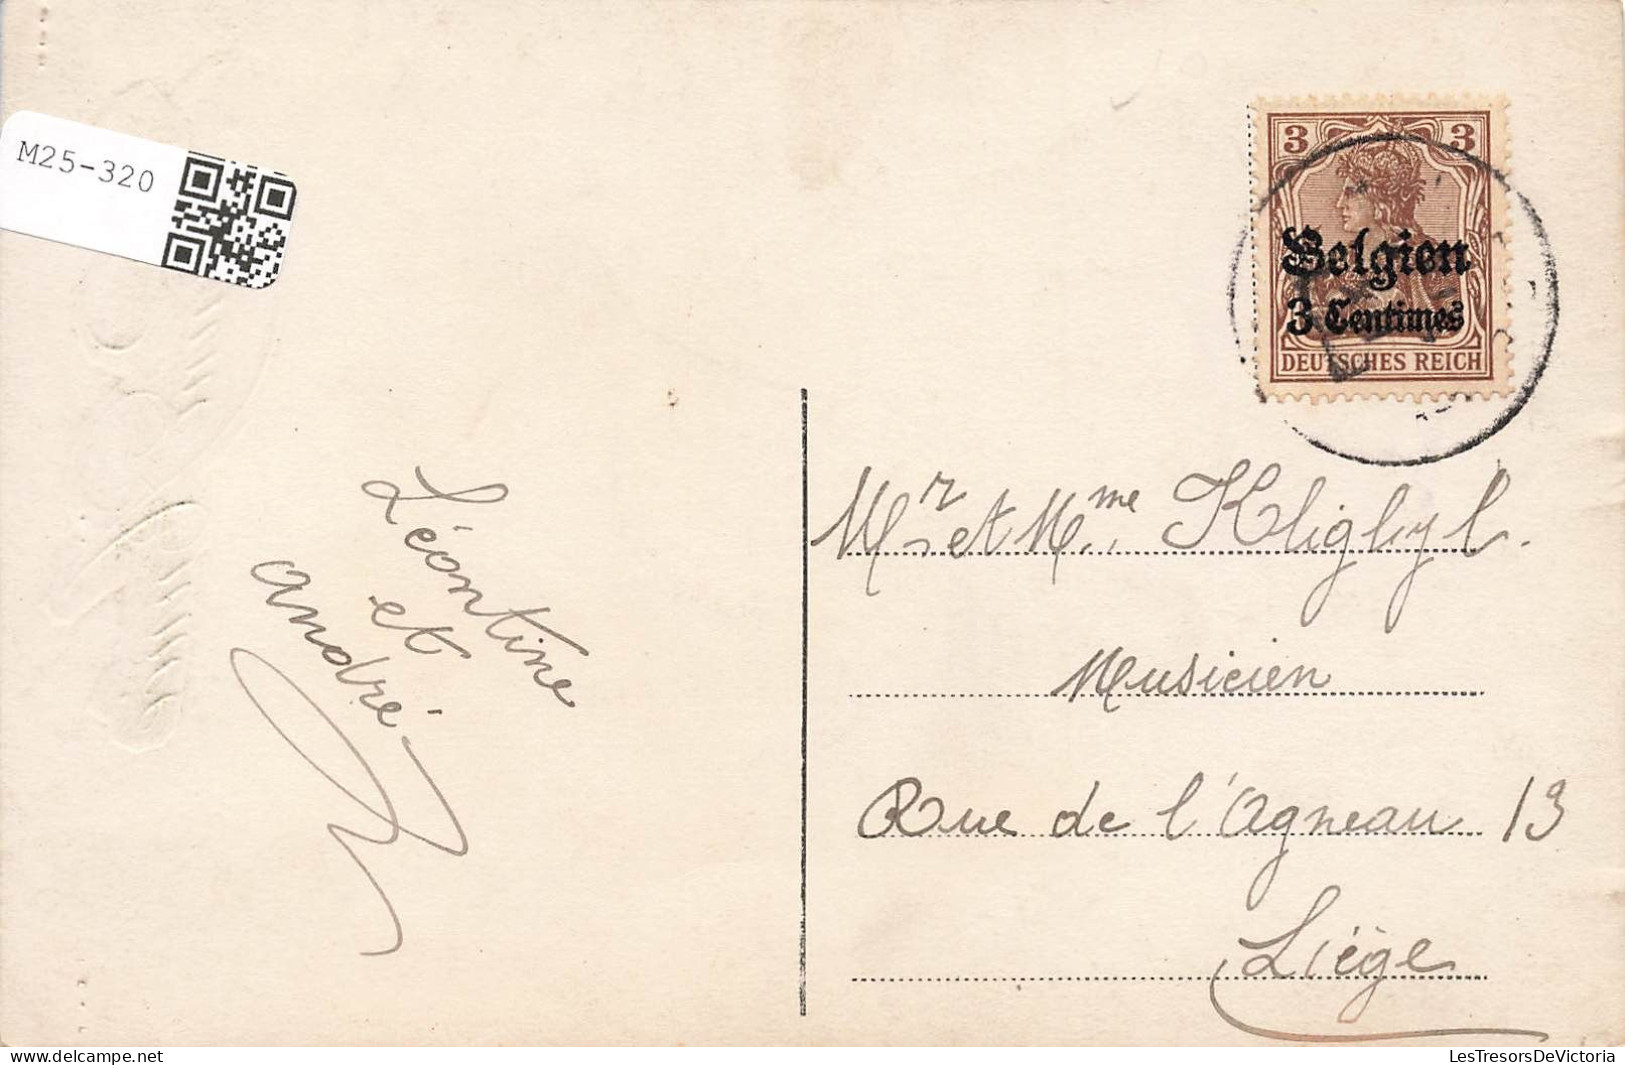 M25-320
3 3
Belgien
3 Centimes
DEUTSCHES REICH
Léontine
et
andré
Mr et Mme
Musicien
Rue de l'Agneau 13
Liège
M25-320
LesTresorsDeVictoria